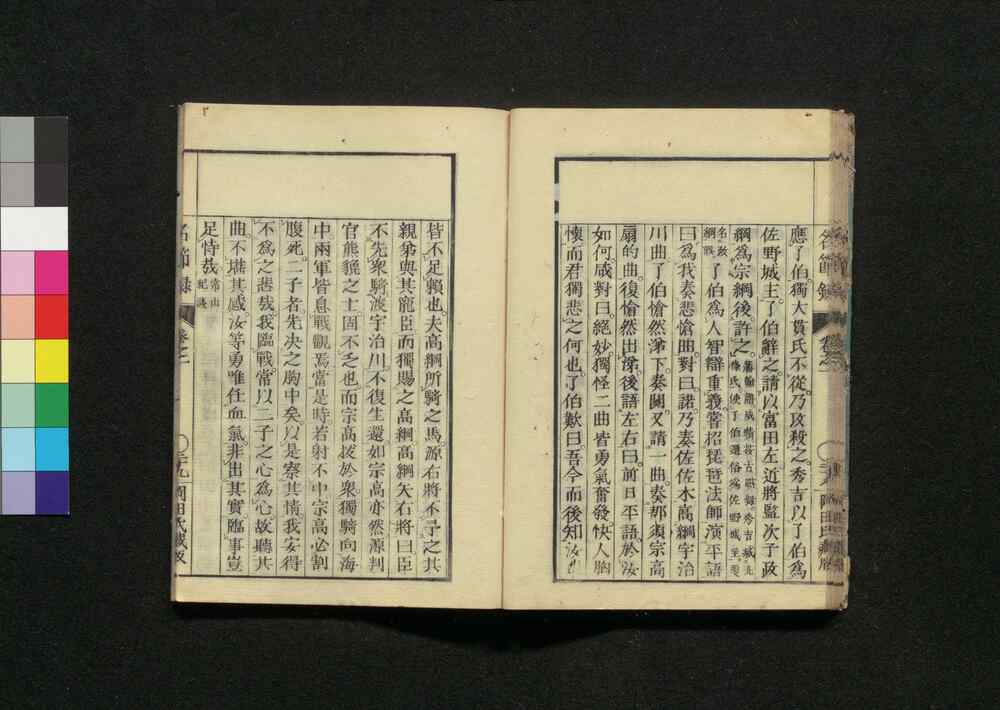 應了伯獨大貫氏不從乃攻殺之秀吉以了伯爲
佐野城主了伯辭之請以富田左近將監次子政
綱爲宗綱後許之
名政
綱了伯爲人智辯重義嘗招琵琶法師演平語
曰爲我奏悲愴曲對曰諾乃奏佐佐木高綱宇治
川曲了伯愴然涕下奏闋又請一曲奏那須宗高
扇的曲復愴然出涕後語左右曰前日平語於汝
如何咸對曰絕妙獨怪二曲皆勇氣奮發快人胸
懷而君獨悲之何也了伯歎曰吾今而後知汝
皆不足賴也夫高綱所騎之馬源右將不予之其
親弟與其寵臣而獨賜之高綱高綱矢右將曰臣
不先衆騎渡宇治川不復生還如宗高亦然源判
官熊貔之士固不乏也而宗高拔於衆獨騎向海
中兩軍皆息戰觀焉當是時若射不中宗高必割
腹死二子者先决之胸中矣以是察其情我安得
不爲之悲哉我臨戰常以二子之心爲心故聽其
曲不堪其感汝等勇唯任血氣非出其實臨事豈
足恃哉 常山
紀談
名節錄 卷之二
岡田氏藏版